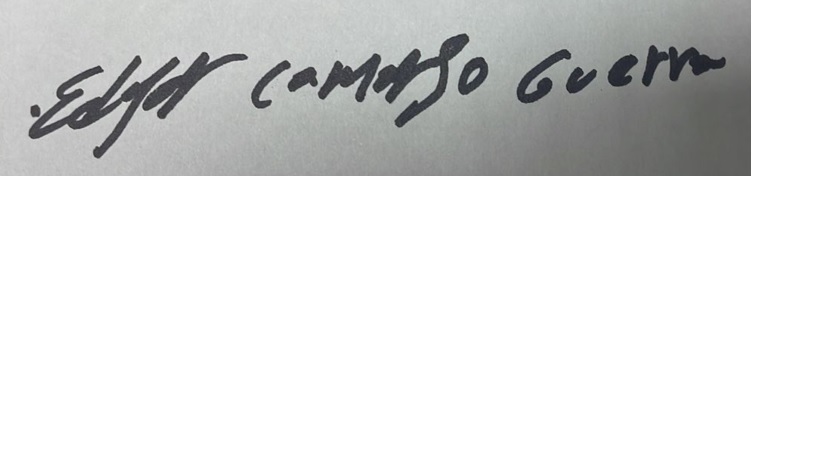 Edgar Camargo Guerra